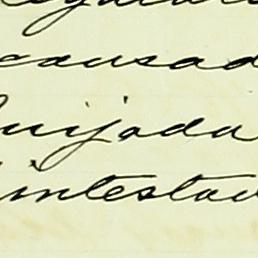 causad
uijada
intestad